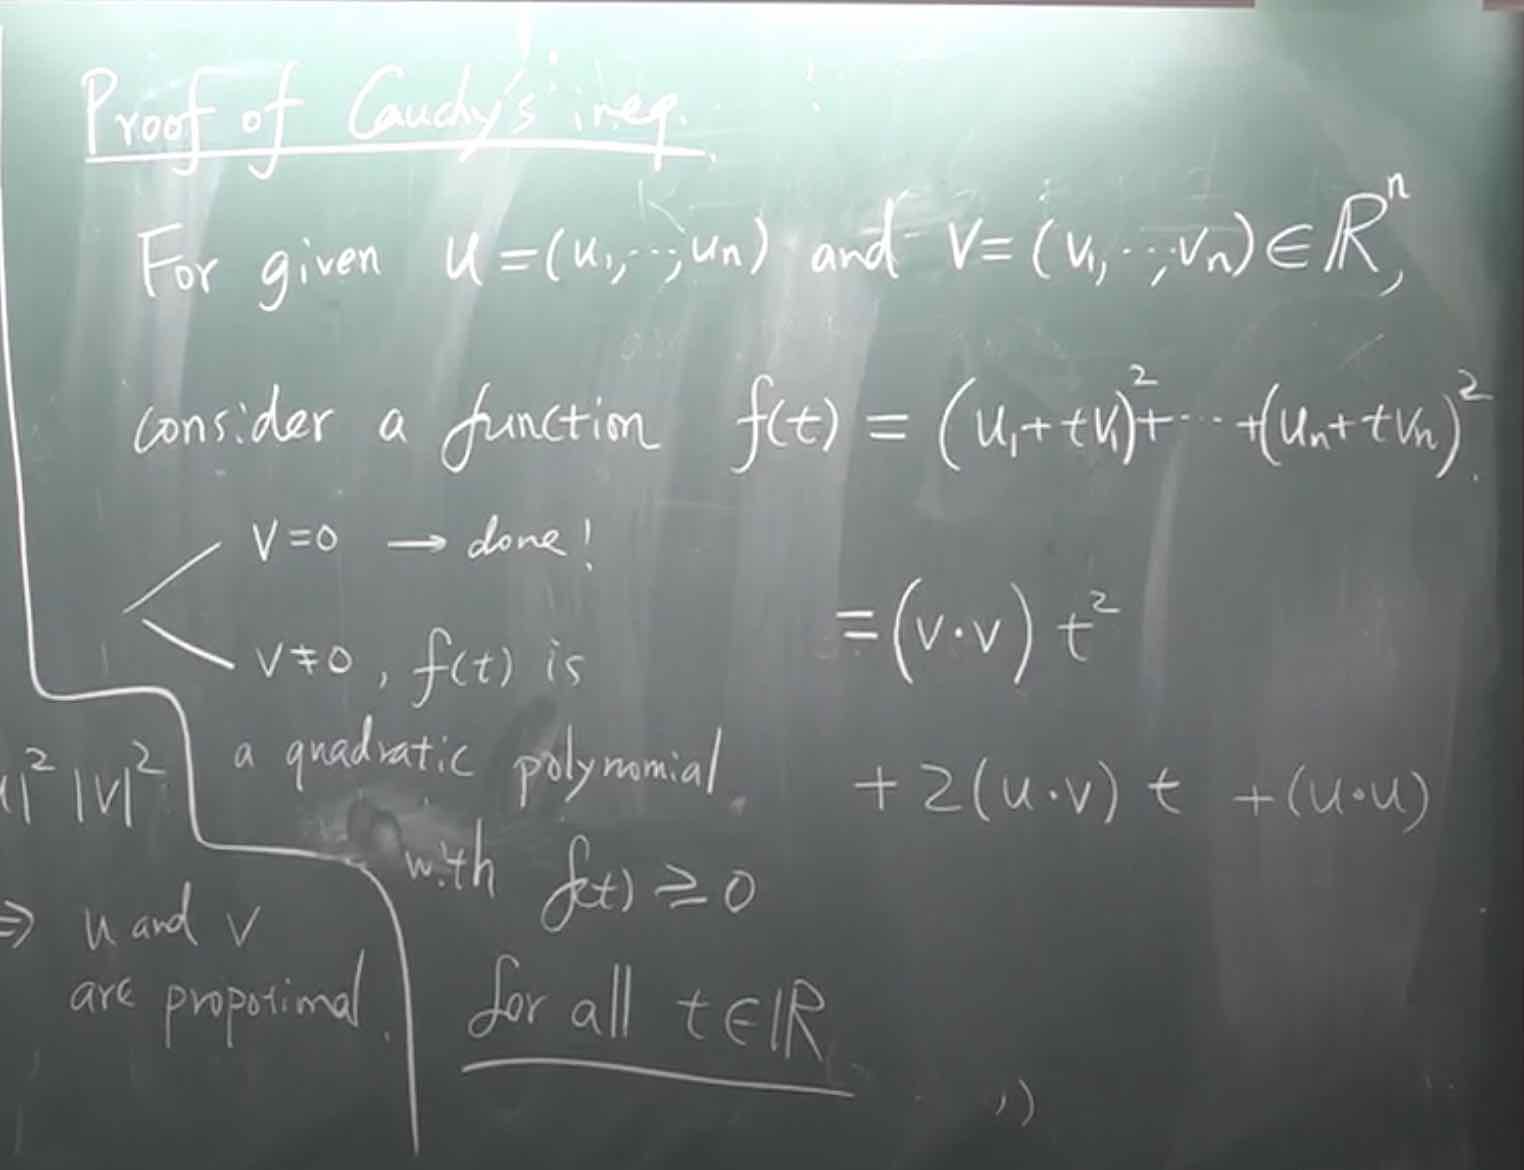 Proof of Cauchy's ineq.
For given u=(u₁,⋯,uₙ) and v=(v₁,⋯,vₙ)∈ℝⁿ,
consider a function f(t) = (u₁+tv₁)²+⋯+(uₙ+tvₙ)².
v=0 → done!
=(v·v) t²
v≠0, f(t) is
a quadratic polynomial
+2(u·v) t +(u·u)
with f(t) ≥ 0
for all t∈ℝ
|² |v|²
⇒ u and v
are propotimal.